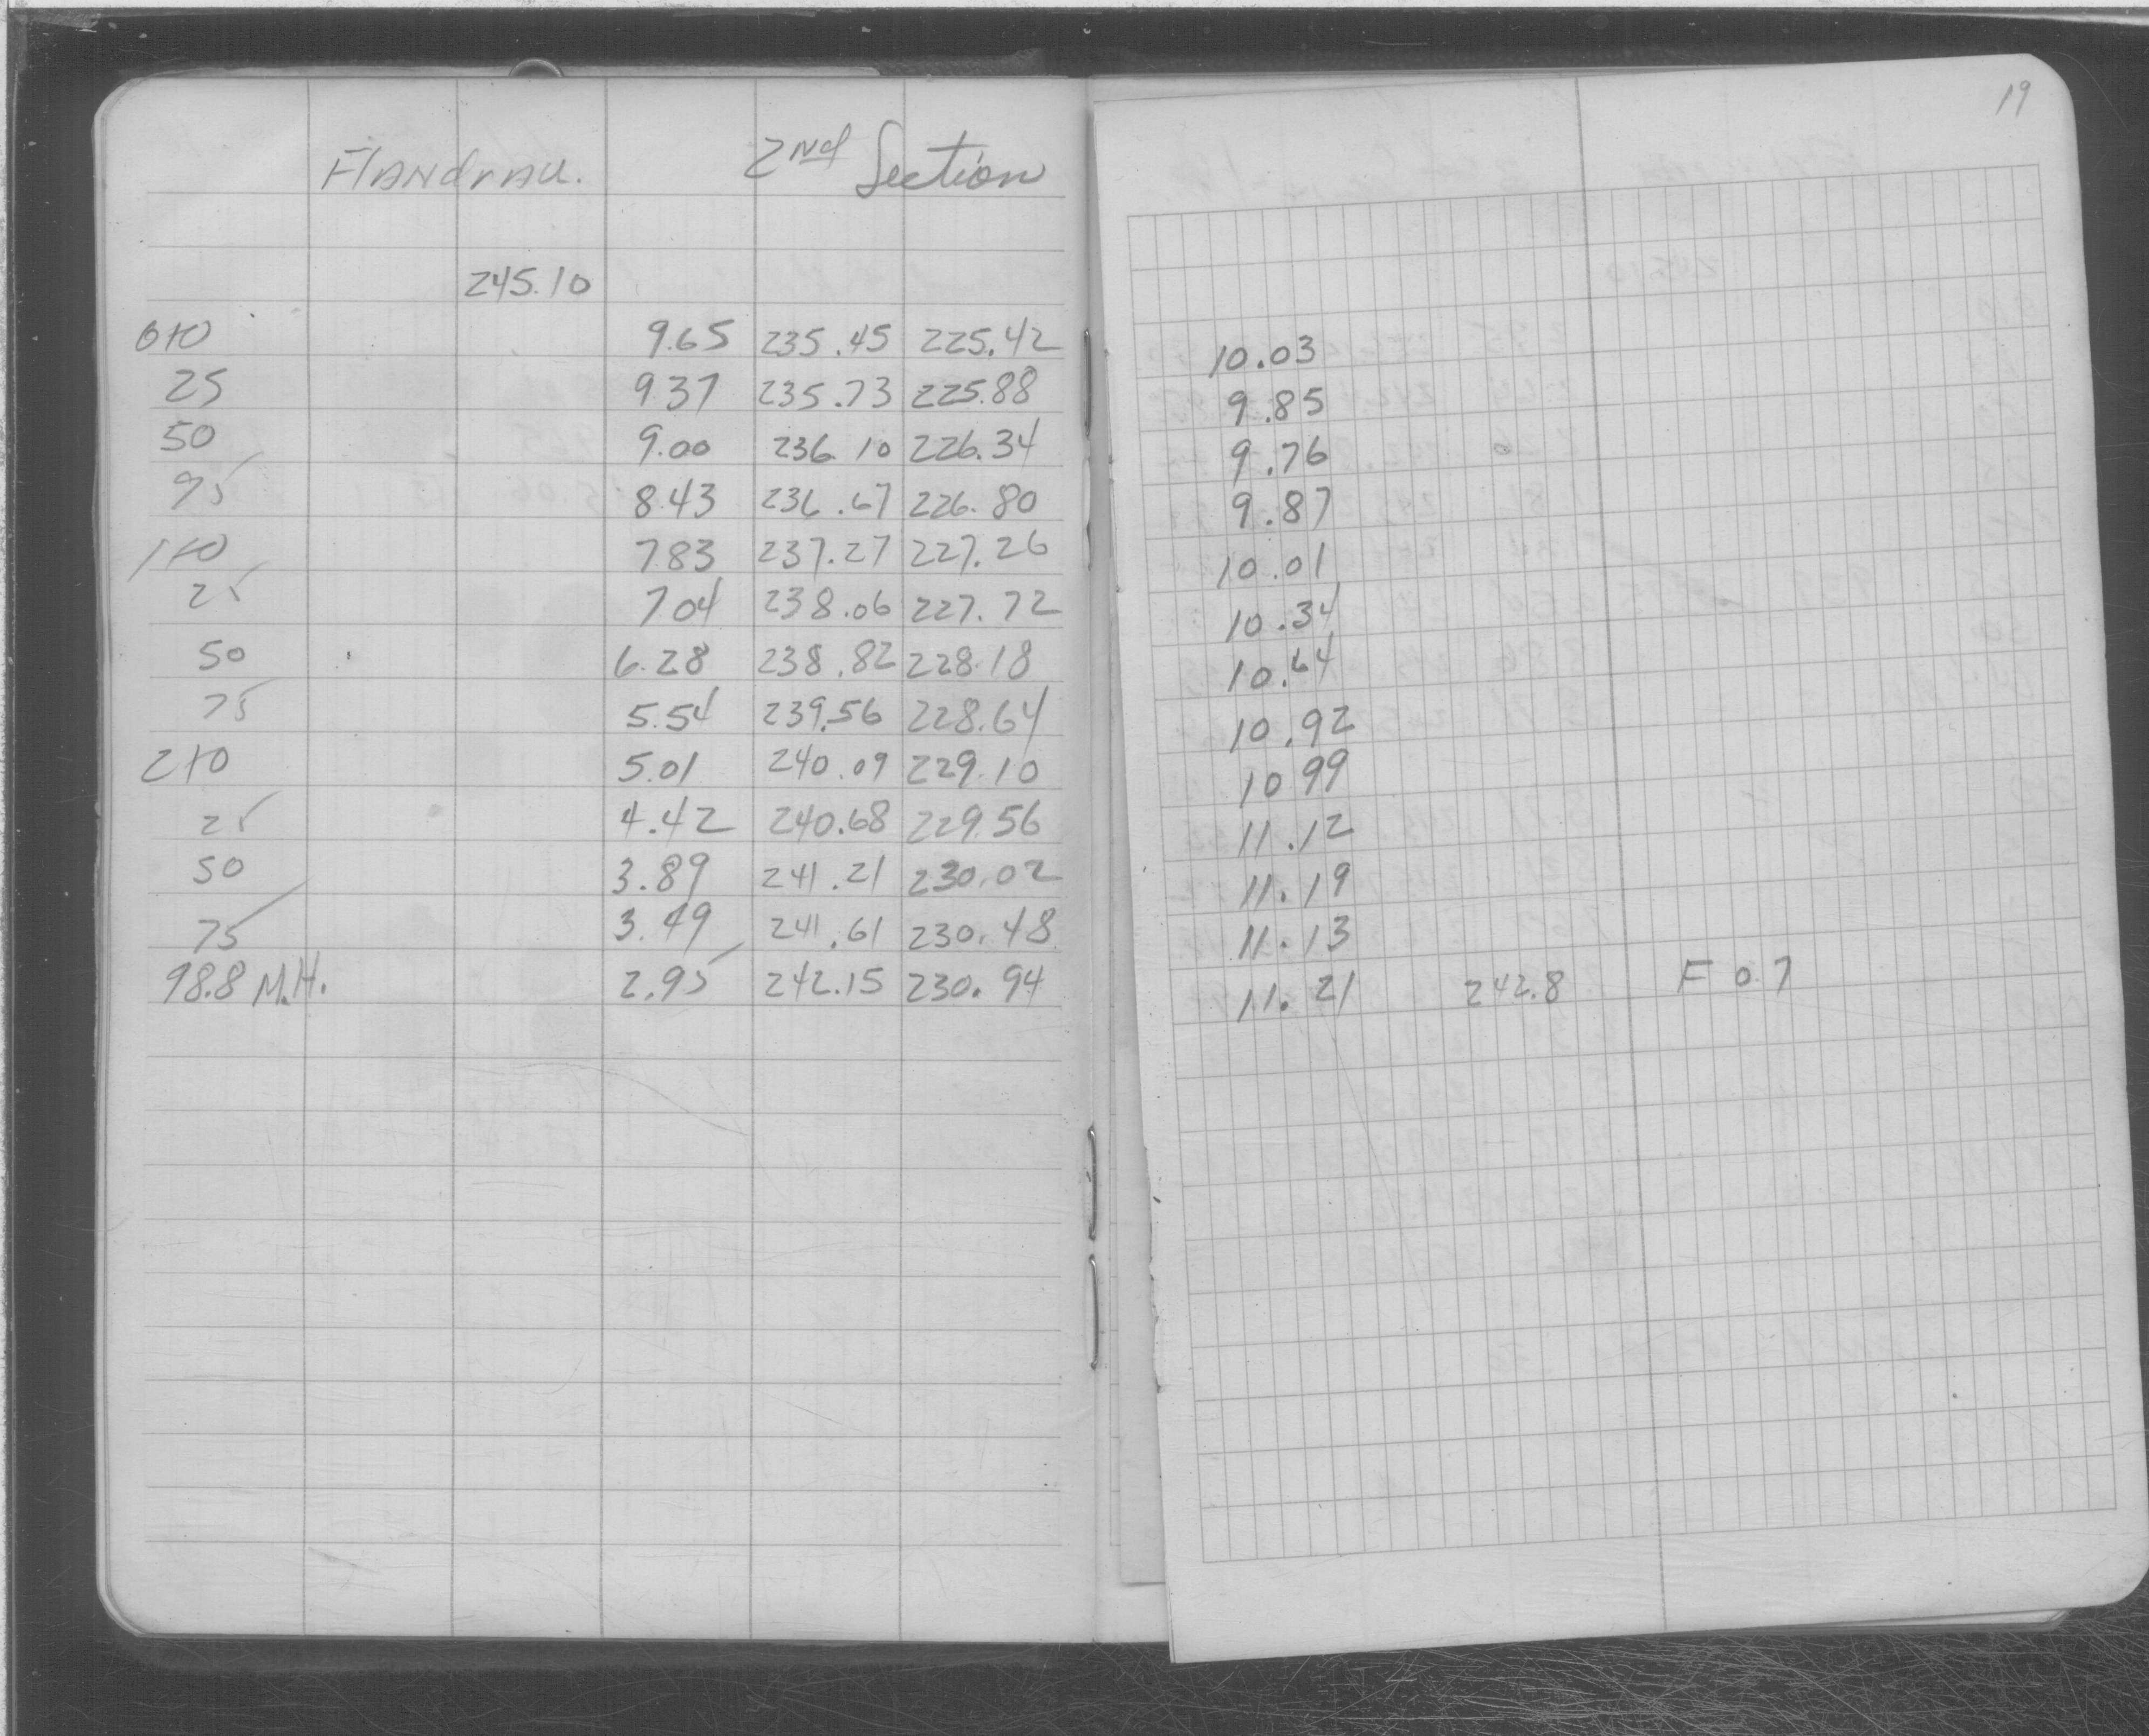 19
Flandrau. 2nd Section
245.10
0+0 9.65 235.45 225.42 10.03
25 937 235.73 225.88 9.85
50 9.00 236.10 226.34 9.76
75 8.43 236.67 226.80 9.87
1+0 783 237.27 227.26 10.01
25 704 238.06 227.72 10.34
50 6.28 238.82 228.18 10.64
75 5.54 239.56 228.64 10.92
2+0 5.01 240.09 229.10 10 99
25 4.42 240.68 229.56 11.12
50 3.89 241.21 230.02 11.19
75 3.49 241.61 230.48 11.13
98.8 M.H. 2.95 242.15 230.94 11.21 242.8 F 0.7